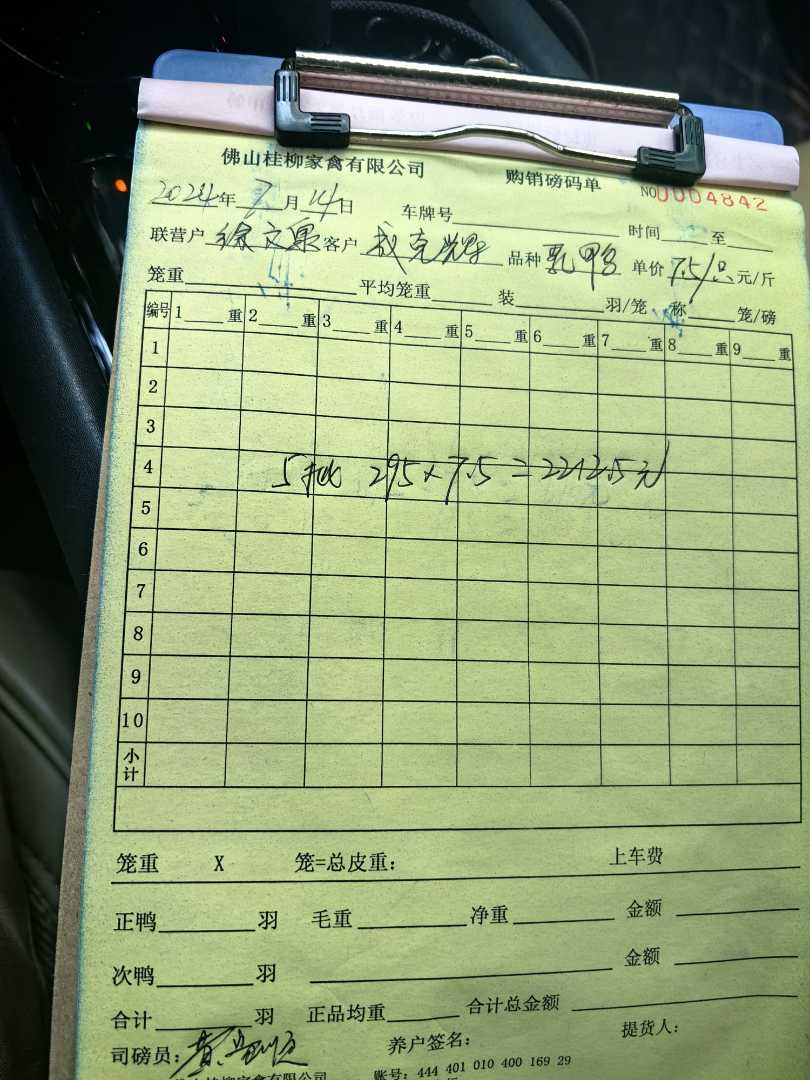 佛山桂柳家禽有限公司 购销磅码单 NO0004842
2024年7月14日 车牌号 时间 至
联营户 徐文 客户 克辉 品种 乳甲 单价 7.5/只 元/斤
笼重 平均笼重 装 羽/笼 称 笼/磅
编号 1 重 2 重 3 重 4 重 5 重 6 重 7 重 8 重 9 重
1
2
3
4
5批 295×7.5=2212.5元
5
6
7
8
9
10
小计
笼重 X 笼=总皮重: 上车费
正鸭 羽 毛重 净重 金额
次鸭 羽 金额
合计 羽 正品均重 合计总金额
司磅员: 黄 养户签名: 提货人:
佛山桂柳家禽有限公司 账号: 444 401 010 400 169 29